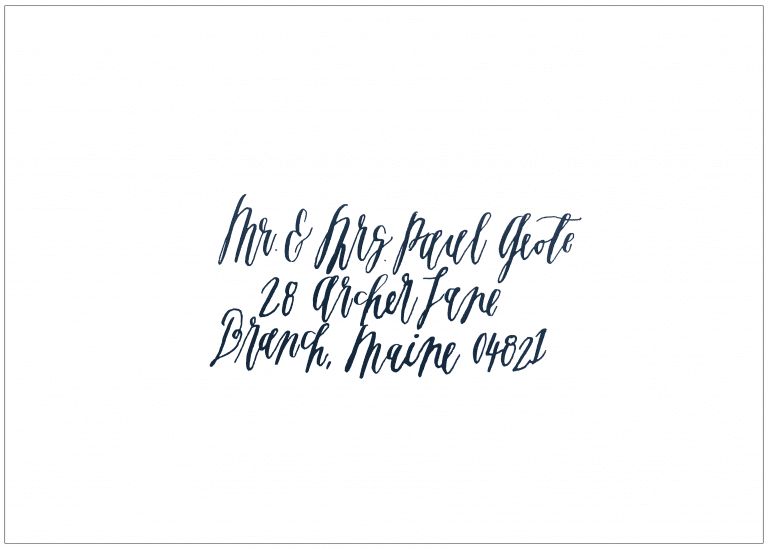 Mr. & Mrs. Paul Geote
28 Archer Lane
Branch, Maine 04821